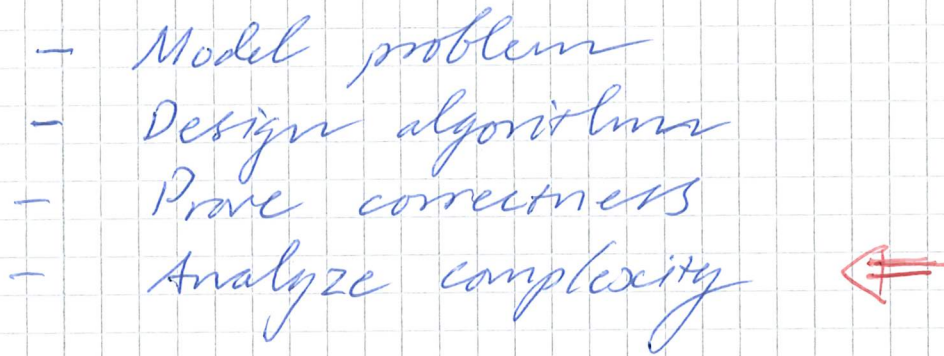 - Model problem
- Design algorithm
- Prove correctness
- Analyze complexity